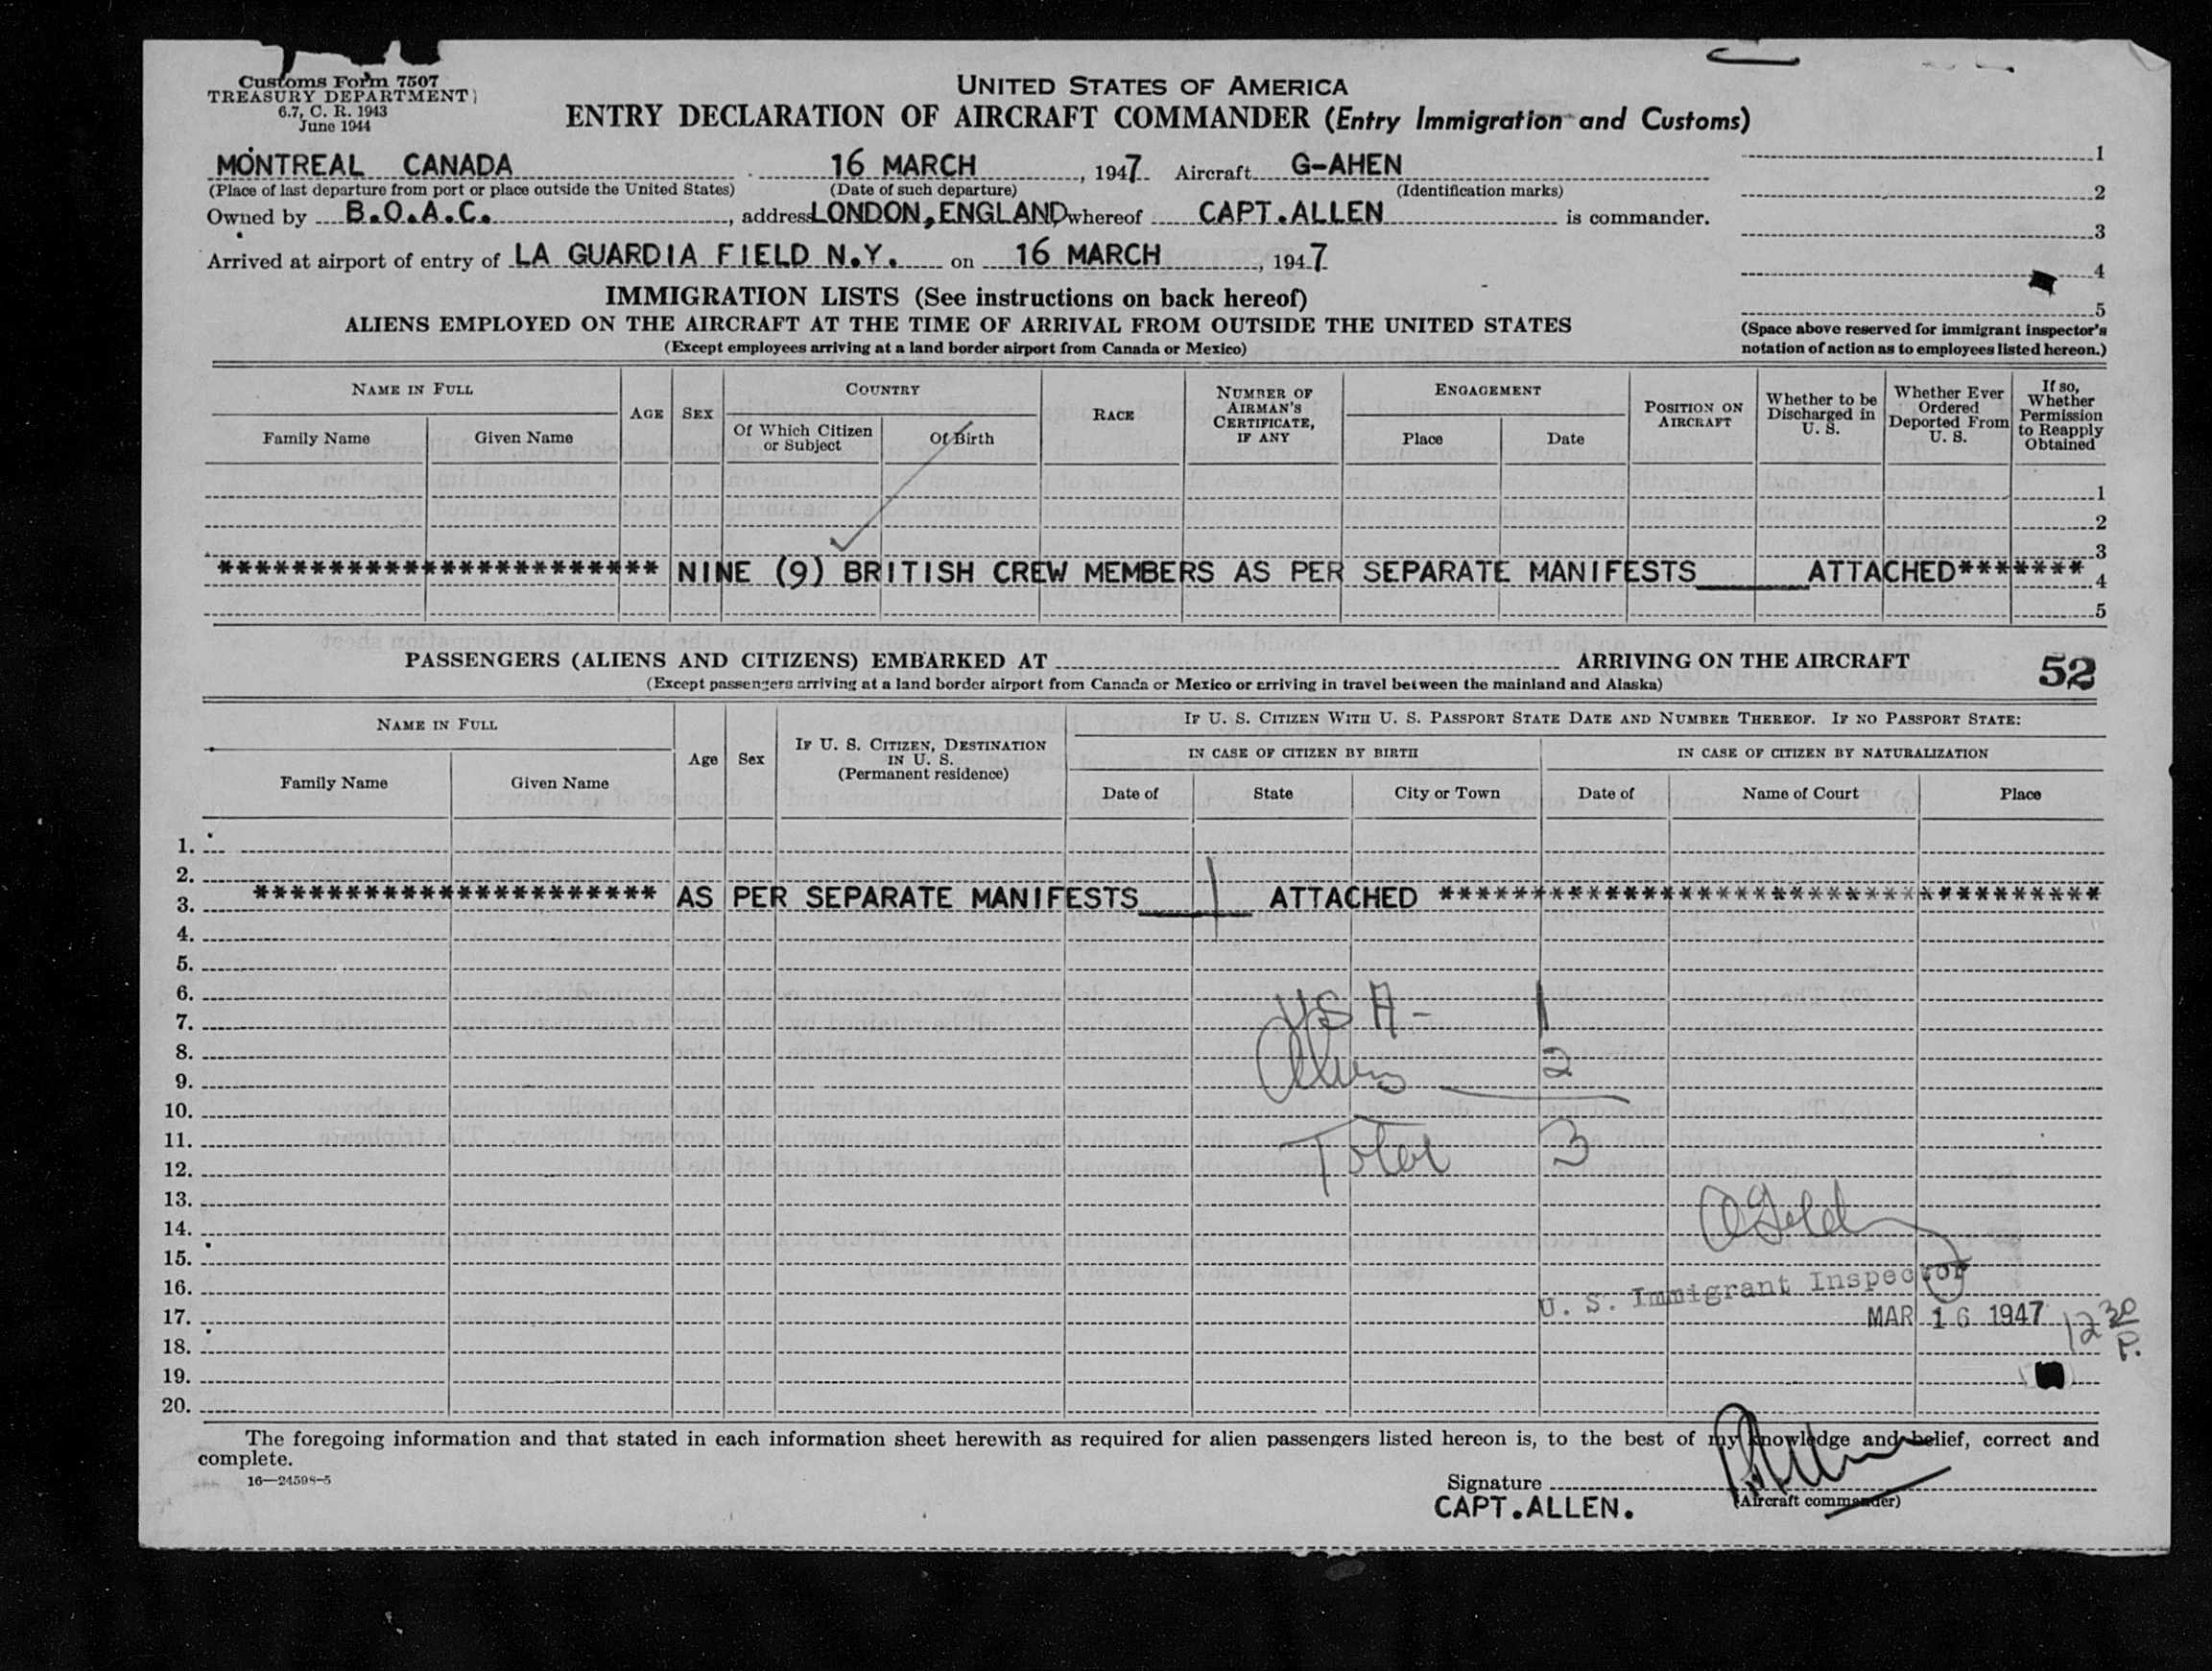 Customs Form 7507
TREASURY DEPARTMENT
6.7, C. R. 1943
June 1944
UNITED STATES OF AMERICA
ENTRY DECLARATION OF AIRCRAFT COMMANDER (Entry Immigration and Customs)
MONTREAL CANADA 16 MARCH, 1947 Aircraft G-AHEN
(Place of last departure from port or place outside the United States) (Date of such departure) (Identification marks)
Owned by B.O.A.C., address LONDON, ENGLAND, whereof CAPT. ALLEN is commander.
Arrived at airport of entry of LA GUARDIA FIELD N.Y. on 16 MARCH, 1947
1
2
3
4
5
(Space above reserved for immigrant inspector's
notation of action as to employees listed hereon.)
IMMIGRATION LISTS (See instructions on back hereof)
ALIENS EMPLOYED ON THE AIRCRAFT AT THE TIME OF ARRIVAL FROM OUTSIDE THE UNITED STATES
(Except employees arriving at a land border airport from Canada or Mexico)
NAME IN FULL
Family Name
Given Name
AGE
SEX
COUNTRY
Of Which Citizen
or Subject
Of Birth
RACE
NUMBER OF
AIRMAN'S
CERTIFICATE,
IF ANY
ENGAGEMENT
Place
Date
POSITION ON
AIRCRAFT
Whether to be
Discharged in
U. S.
Whether Ever
Ordered
Deported From
U. S.
If so,
Whether
Permission
to Reapply
Obtained
1
2
3
************************ NINE (9) BRITISH CREW MEMBERS AS PER SEPARATE MANIFESTS______ATTACHED******* 4
5
PASSENGERS (ALIENS AND CITIZENS) EMBARKED AT ARRIVING ON THE AIRCRAFT
52
(Except passengers arriving at a land border airport from Canada or Mexico or arriving in travel between the mainland and Alaska)
NAME IN FULL
Family Name
Given Name
Age
Sex
IF U. S. CITIZEN, DESTINATION
IN U. S.
(Permanent residence)
IF U. S. CITIZEN WITH U. S. PASSPORT STATE DATE AND NUMBER THEREOF. IF NO PASSPORT STATE:
IN CASE OF CITIZEN BY BIRTH
Date of
State
City or Town
IN CASE OF CITIZEN BY NATURALIZATION
Date of
Name of Court
Place
1.
2.
3. ********************** AS PER SEPARATE MANIFESTS 1 ATTACHED ************************************
4.
5.
6.
7. USA - 1
8. Aliens 2
9.
10.
11. Total 3
12.
13.
14.
15.
16. U. S. Immigrant Inspector
17. MAR 16 1947 12 30 P.
18.
19.
20.
The foregoing information and that stated in each information sheet herewith as required for alien passengers listed hereon is, to the best of my knowledge and belief, correct and
complete.
16—24598-5
Signature
(Aircraft commander)
CAPT. ALLEN.